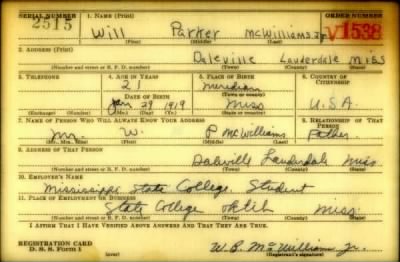 SERIAL NUMBER 1. NAME (Print) ORDER NUMBER
2515 Will Parker McWilliams Jr V1538
(First) (Middle) (Last)
2. ADDRESS (Print)
Daleville Lauderdale Miss
(Number and street or R. F. D. number) (Town) (County) (State)
3. TELEPHONE 4. AGE IN YEARS 5. PLACE OF BIRTH 6. COUNTRY OF CITIZENSHIP
21 Meridian
DATE OF BIRTH (Town or county)
Jan 29 1919 Miss U.S.A.
(Exchange) (Number) (Mo.) (Day) (Yr.) (State or country)
7. NAME OF PERSON WHO WILL ALWAYS KNOW YOUR ADDRESS 8. RELATIONSHIP OF THAT PERSON
Mr. W. P McWilliams Father
(Mr., Mrs., Miss) (First) (Middle) (Last)
9. ADDRESS OF THAT PERSON
Dalville Lauderdale Miss
(Number and street or R. F. D. number) (Town) (County) (State)
10. EMPLOYER'S NAME
Mississippi State College. Student
11. PLACE OF EMPLOYMENT OR BUSINESS
State College Miss
(Number and street or R. F. D. number) (Town) (County) (State)
I AFFIRM THAT I HAVE VERIFIED ABOVE ANSWERS AND THAT THEY ARE TRUE.
REGISTRATION CARD
D. S. S. Form 1 W. P. McWilliams Jr.
(over) (Registrant's signature)